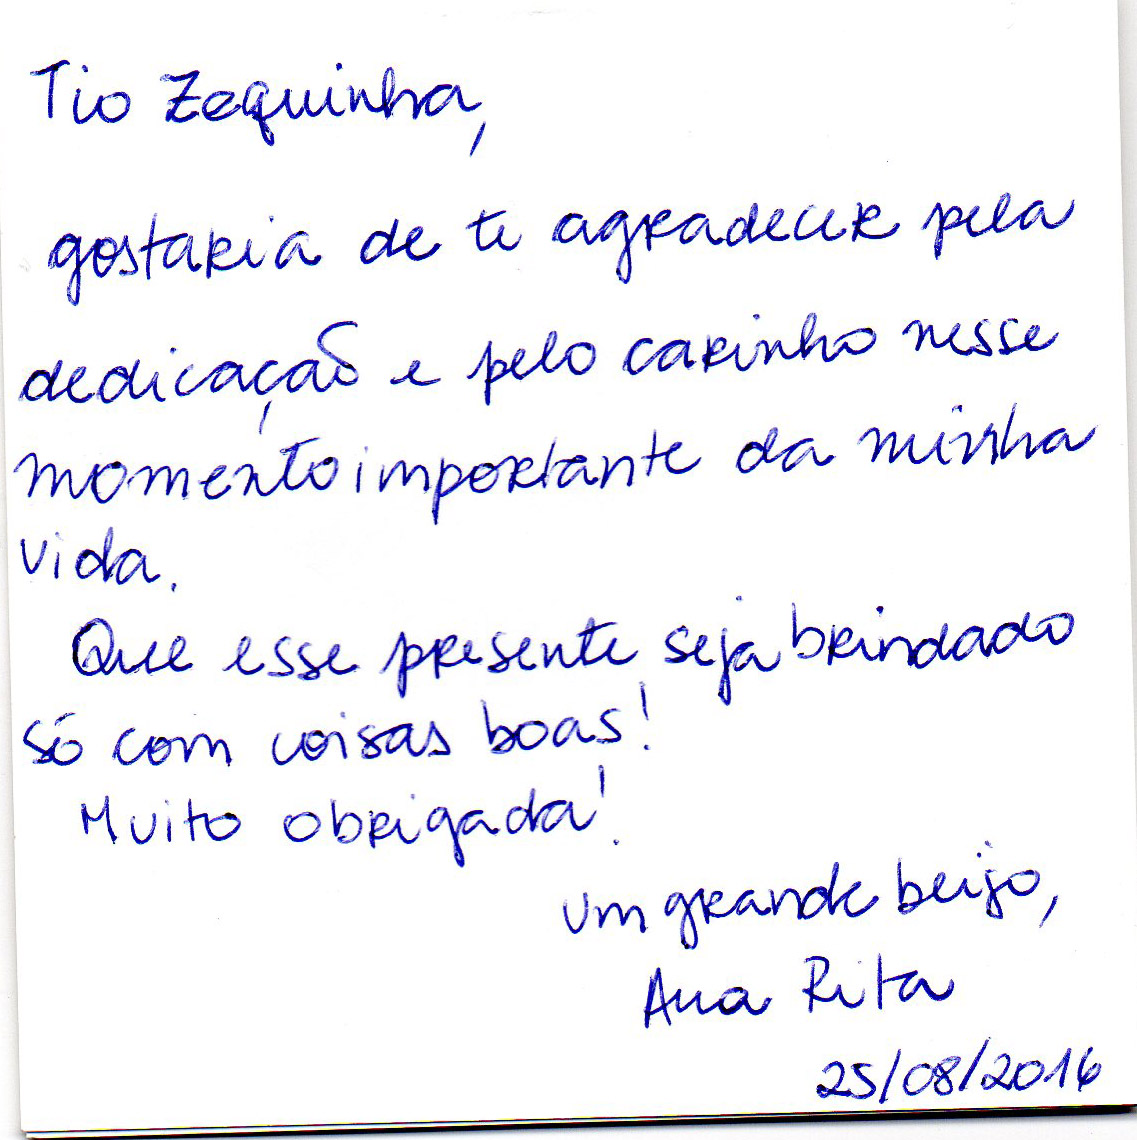 Tio Zequinha,
gostaria de te agradecer pela
dedicação e pelo carinho nesse
momento importante da minha
vida.
Que esse presente seja brindado
só com coisas boas!
Muito obrigada!
um grande beijo,
Ana Rita
25/08/2016